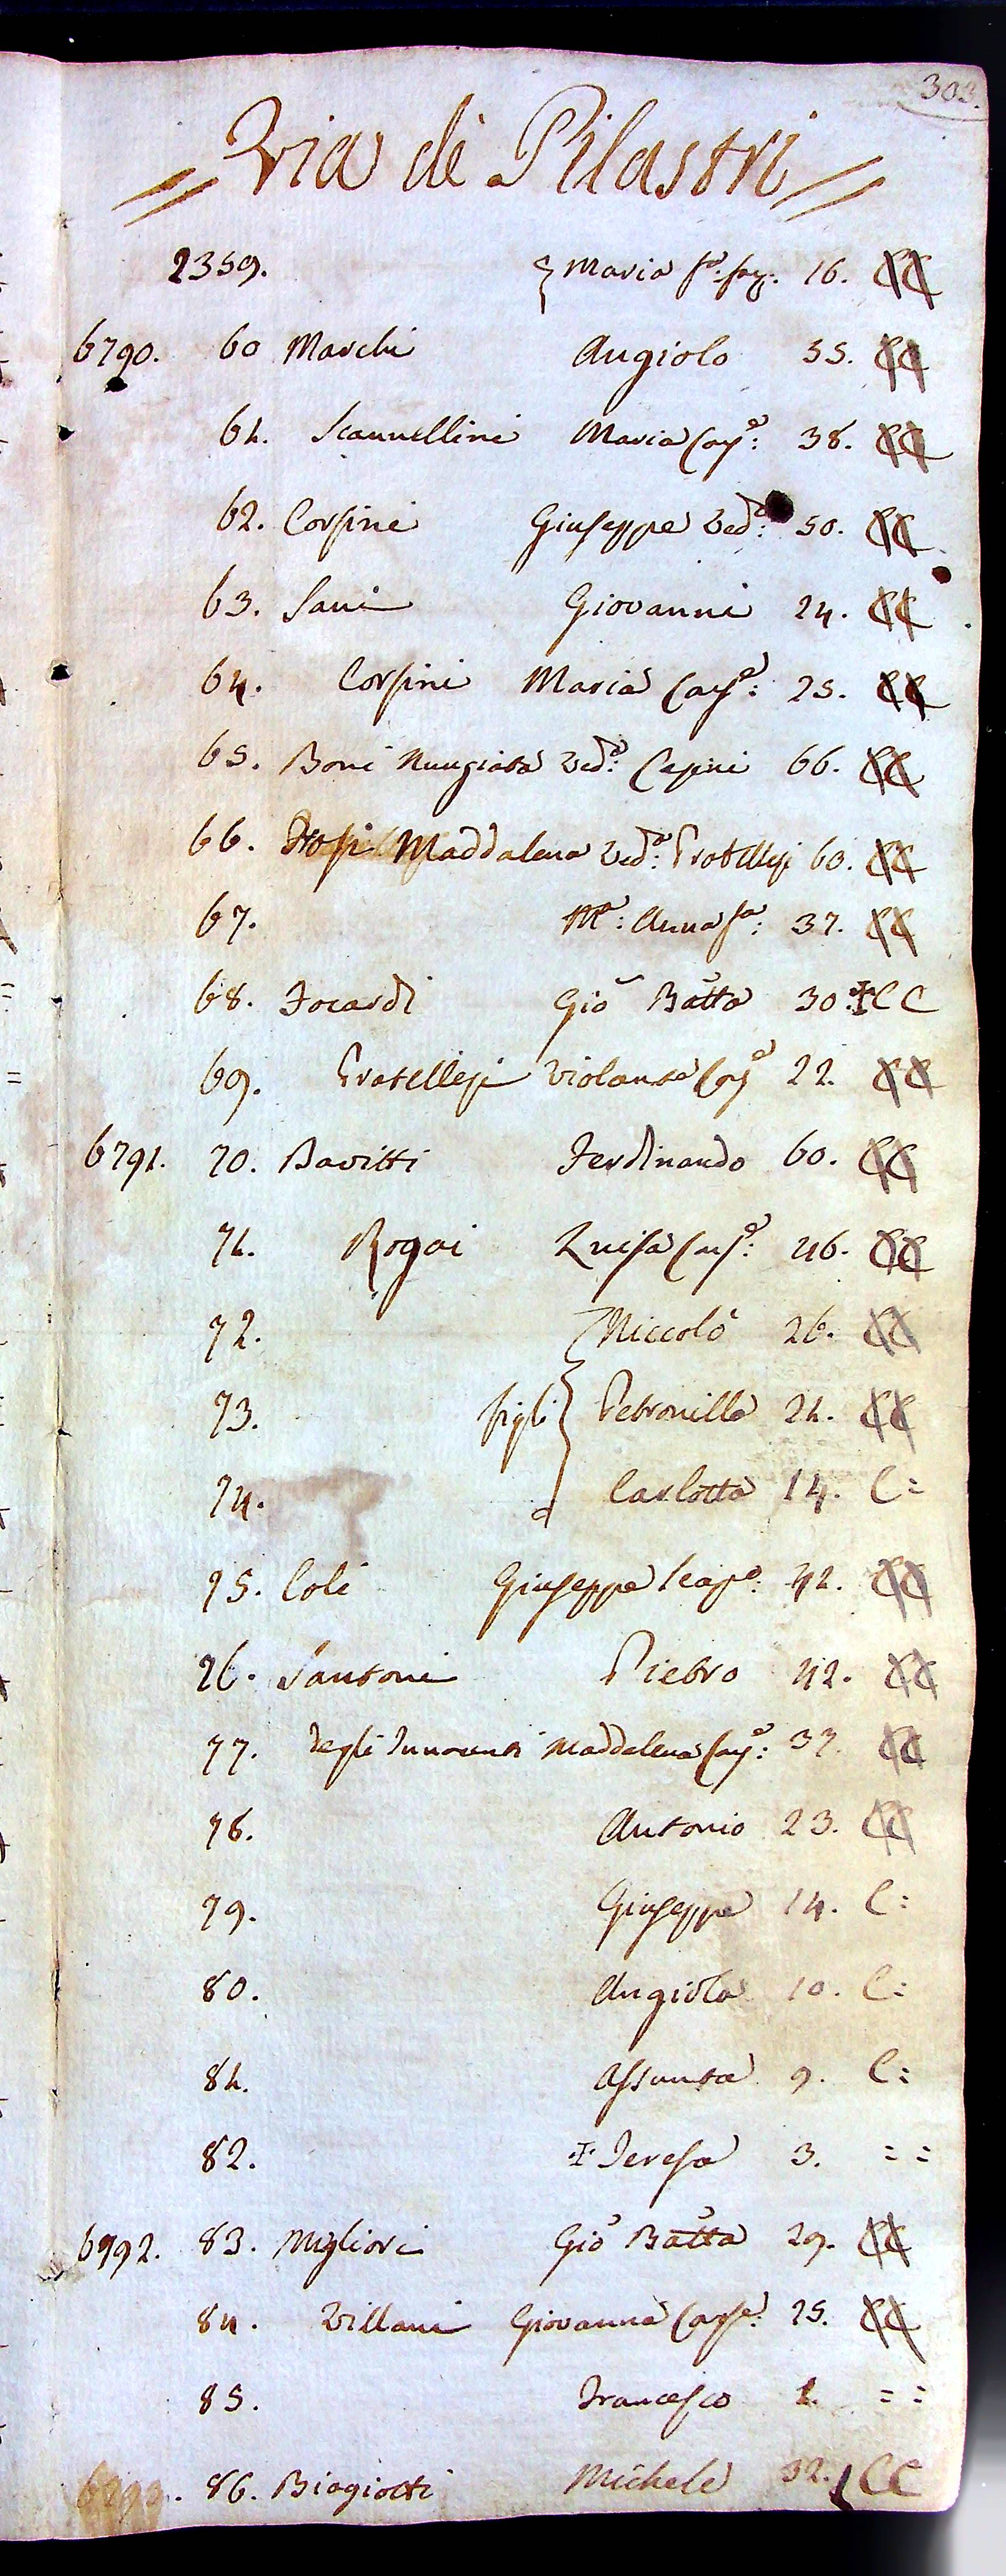 303.
= Via dè Pilastri =
2359. { Maria fa: 16. CC
6790. 60 Marchi Angiolo 35. CC
61. Scannellini Maria Coge: 38. CC
62. Corsini Giuseppe Vedo: 50. CC
63. Sani Giovanni 24. CC
64. Corsini Maria Cage: 25. CC
65. Boni Nunziata Veda: Cesini 66. CC
66. Maddalena Veda: Fratellesi 60. CC
67. Ma: Anna fa: 37. CC
68. Focardi Gio Batta 30. ✠ C C
69. Fratellesi Violante Coge 22. CC
6791. 70. Bavitti Ferdinando 60. CC
71. Rogai Luisa Cage: 46. CC
72. Niccolò 26. CC
73. figli { Petronilla 21. CC
74. Carlotta 14. C:
75. Coli Giuseppe Scapo: 42. CC
76. Santoni Pietro 42. CC
77. Degli Innocenti Maddalena Cage: 37. CC
78. Antonio 23. CC
79. Giuseppe 14. C:
80. Angiola 10. C:
81. Assunta 9. C:
82. ✠ Teresa 3. = =
6792. 83. Migliori Gio Batta 29. CC
84. Villani Giovanna Cage: 25. CC
85. Francesco 1. = =
6793. 86. Biagiotti Michele 32. CC